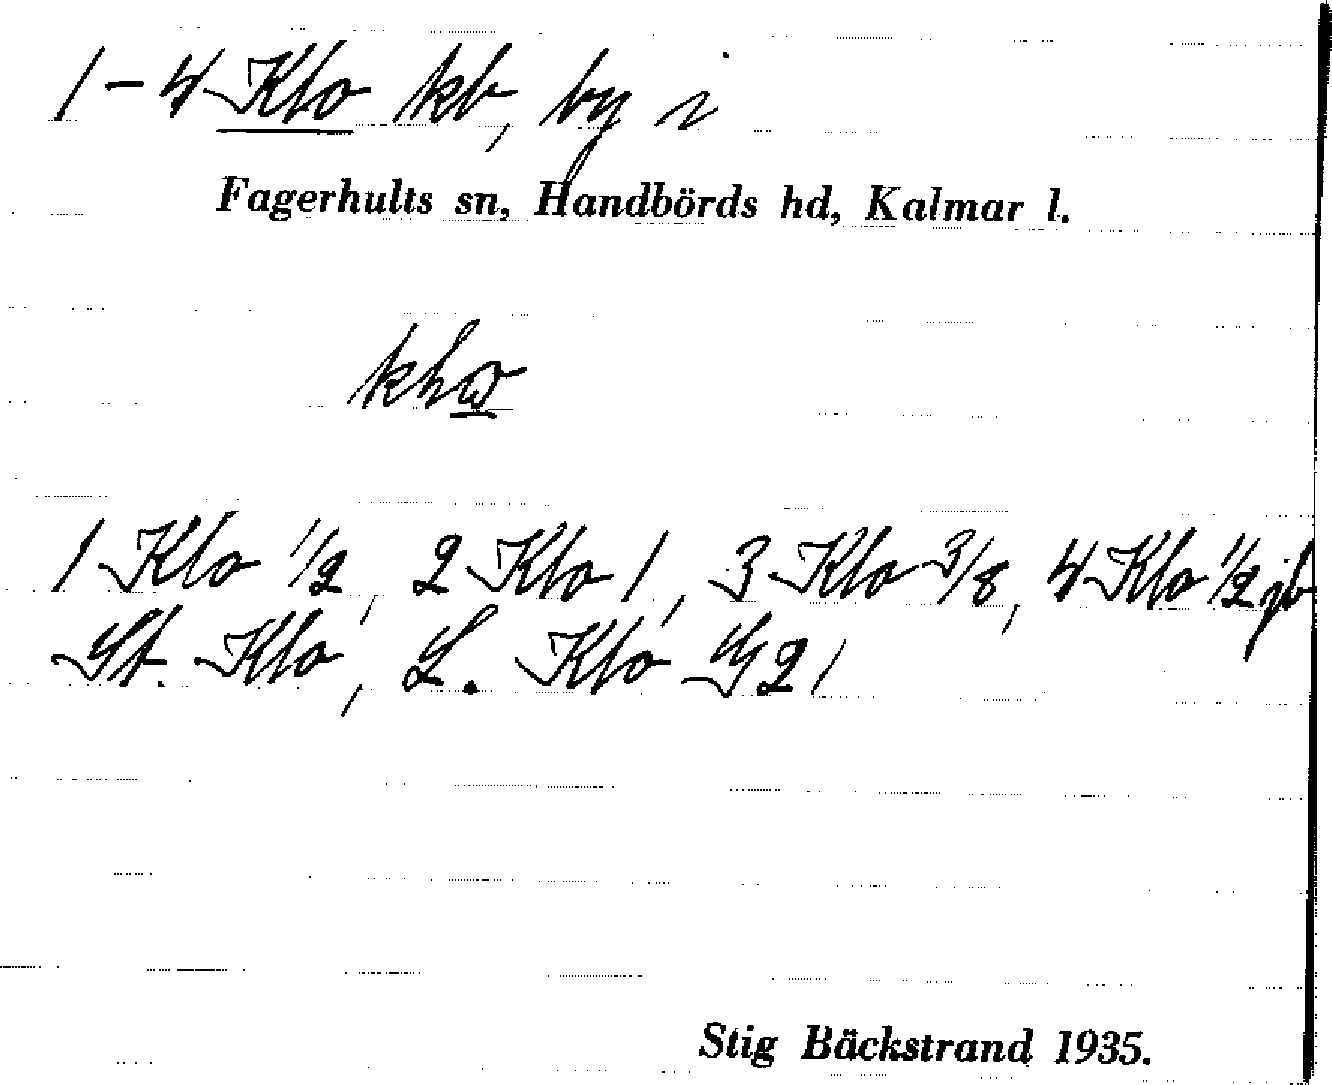 1–4 Klo kb, by i
Fagerhults sn, Handbörds hd, Kalmar l.
1 Klo 1/2, 2 Klo 1, 3 Klo 3/8, 4 Klo 1/2 jb
St. Klo, L. Klo
Stig Bäckstrand 1935.